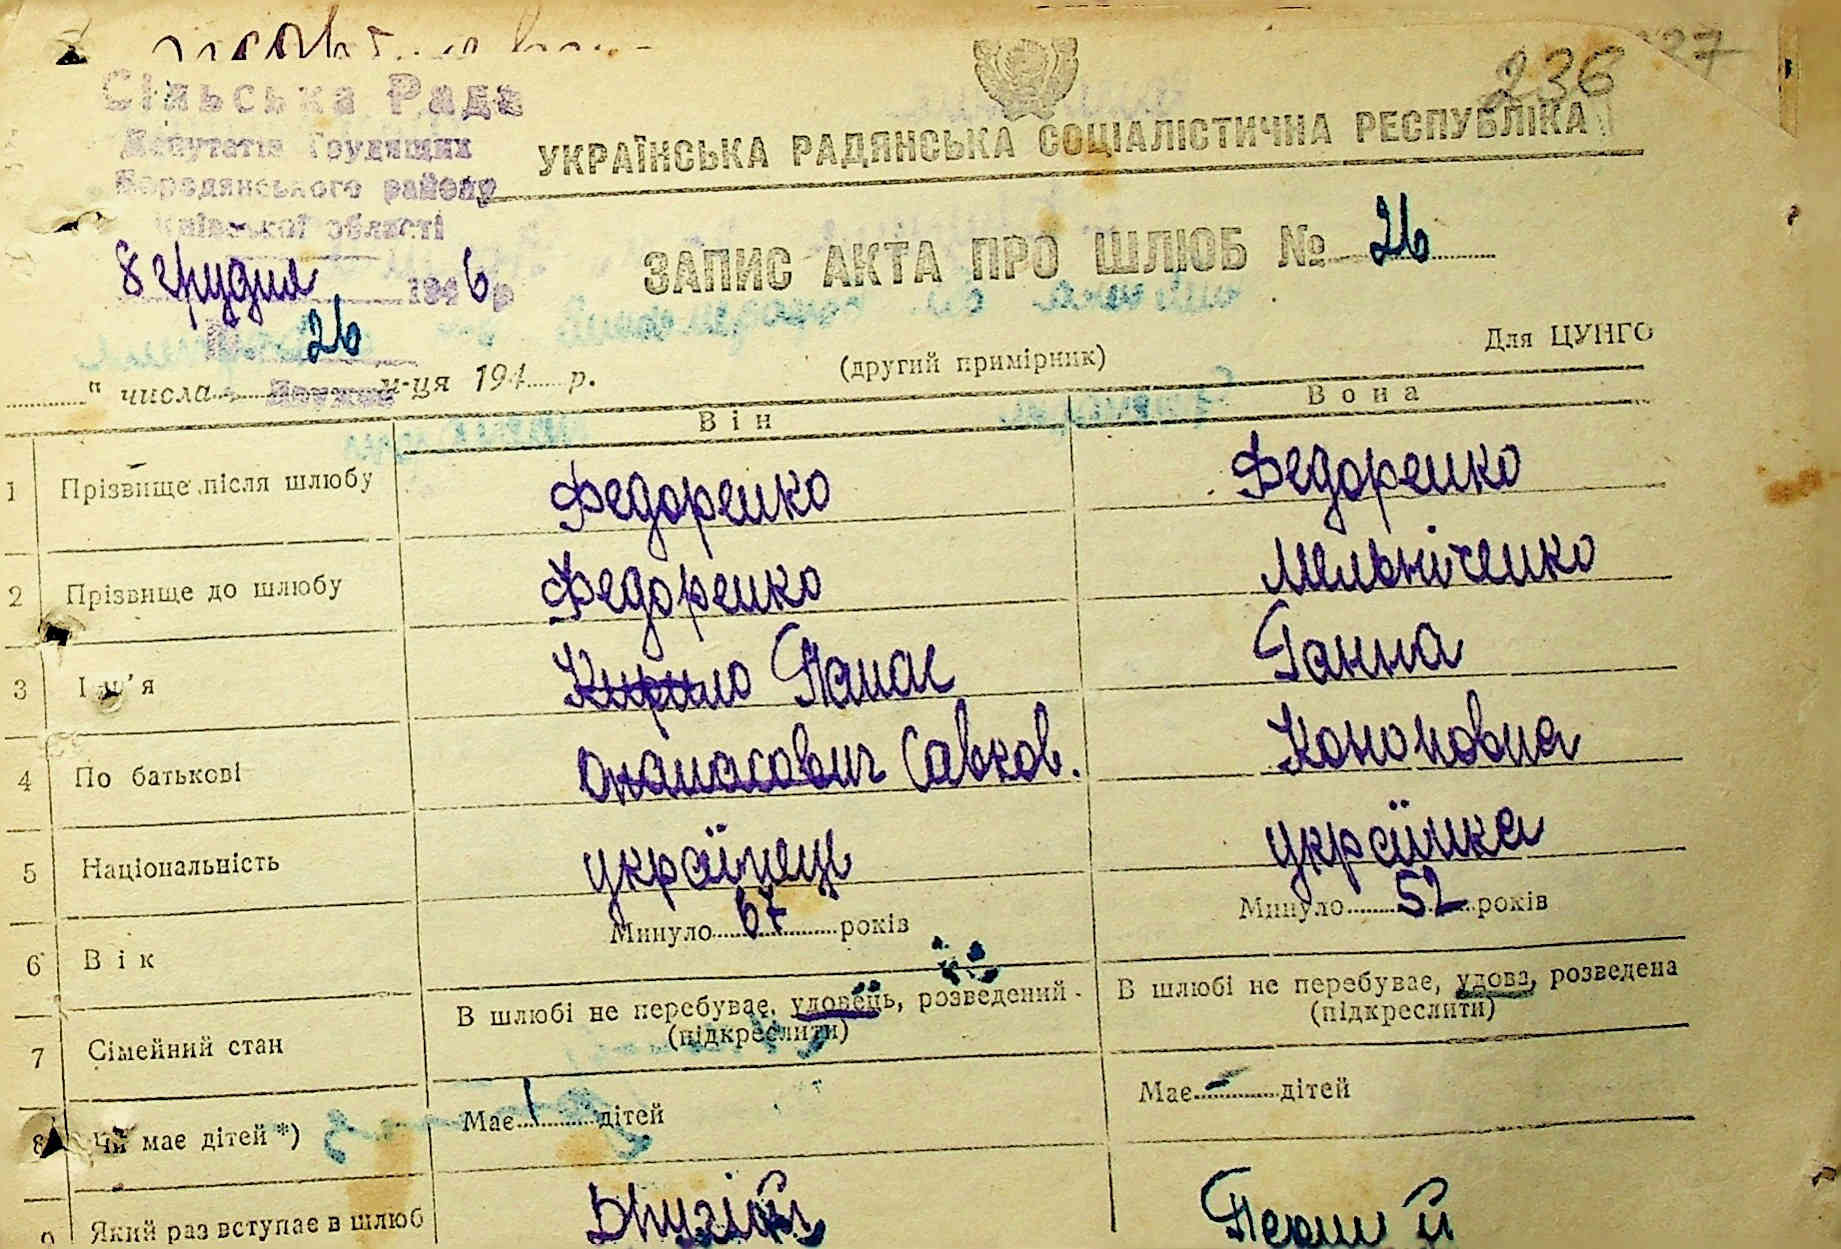 236 27
Сільська Рада
Депутатів Трудящих
Бородянського району
Київської області
УКРАЇНСЬКА РАДЯНСЬКА СОЦІАЛІСТИЧНА РЕСПУБЛІКА
8 грудня 1946 р
№ 26
ЗАПИС АКТА ПРО ШЛЮБ № 26
(другий примірник) Для ЦУНГО
" числа м-ця 194 р.
Він Вона
1 Прізвище після шлюбу Федоренко Федоренко
2 Прізвище до шлюбу Федоренко Мельніченко
3 Ім'я Кирило Панас Ганна
4 По батькові Опанасович Савков. Кононовна
5 Національність українець українка
6 Вік Минуло 67 років Минуло 52 років
7 Сімейний стан В шлюбі не перебуває, удовець, розведений (підкреслити) В шлюбі не перебуває, удова, розведена (підкреслити)
8 Чи має дітей *) Має 1 дітей Має - дітей
9 Який раз вступає в шлюб Другій Перший